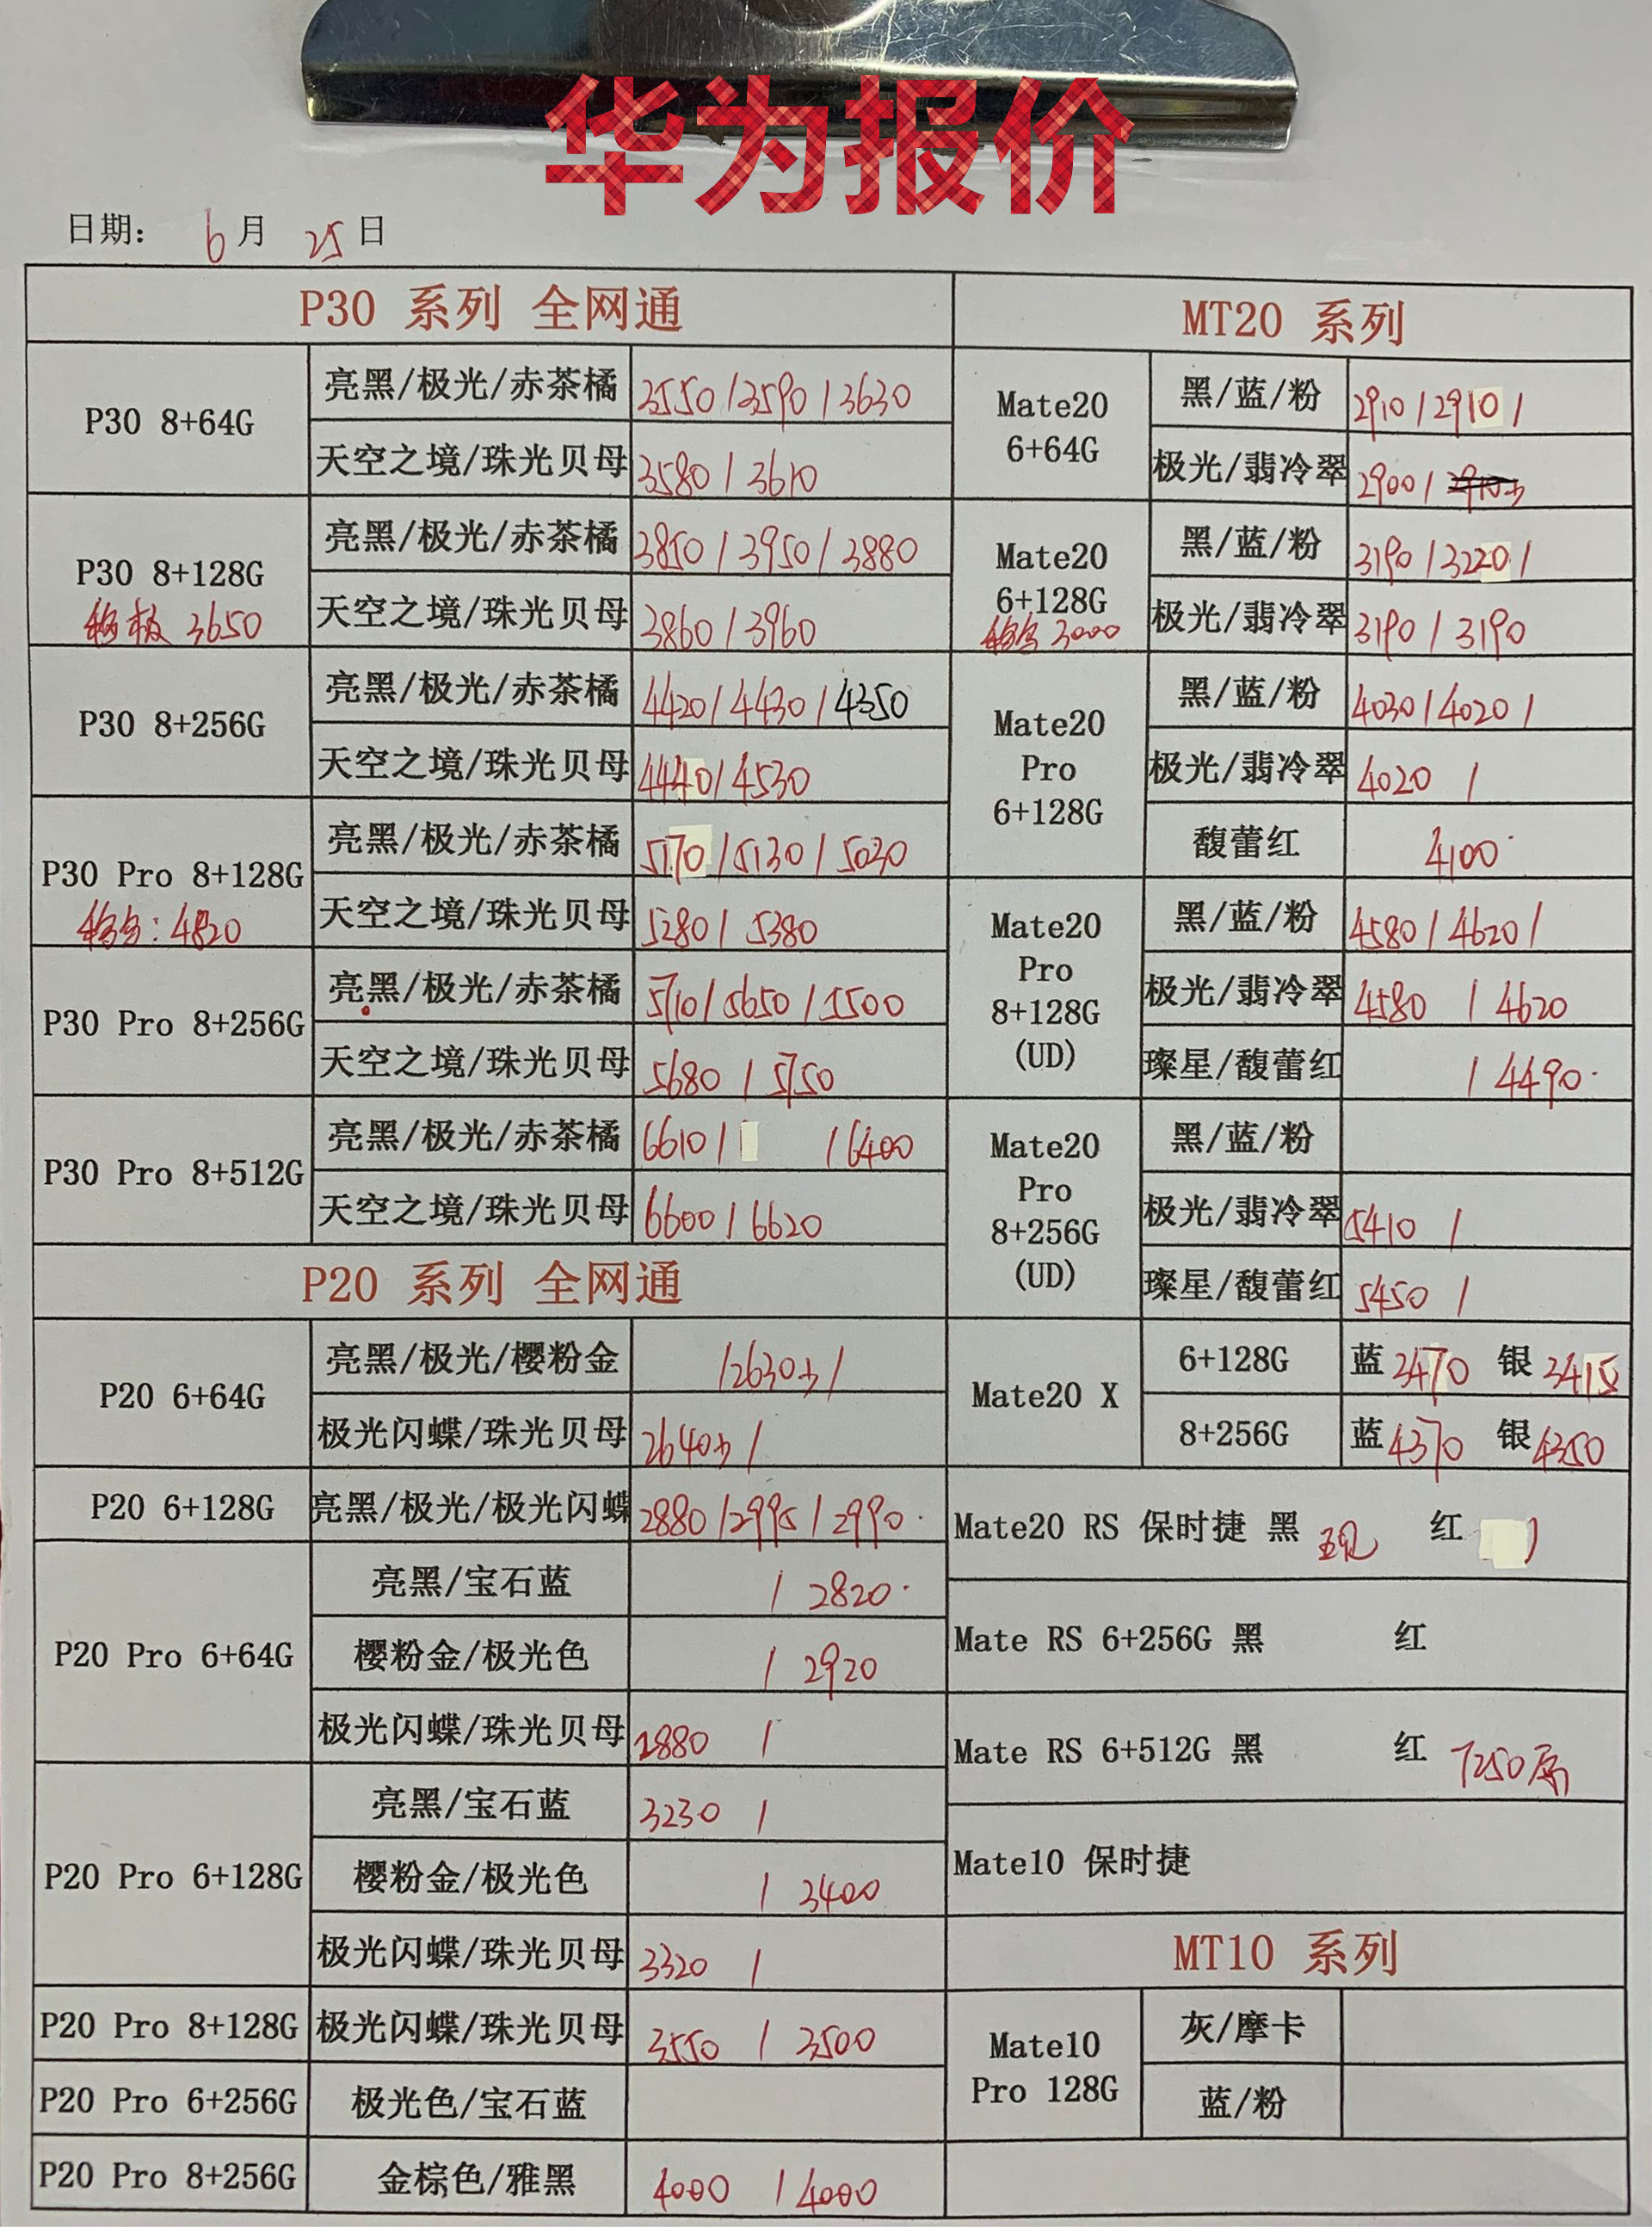 华为报价
日期： 6月 25日
P30 系列 全网通
P30 8+64G
亮黑/极光/赤茶橘 3550/3590/3630
天空之境/珠光贝母 3580/3610
P30 8+128G
移板 3650
亮黑/极光/赤茶橘 3850/3950/3880
天空之境/珠光贝母 3860/3960
P30 8+256G
亮黑/极光/赤茶橘 4420/4430/4350
天空之境/珠光贝母 4440/4530
P30 Pro 8+128G
: 4820
亮黑/极光/赤茶橘 5170/5130/5030
天空之境/珠光贝母 5280/5380
P30 Pro 8+256G
亮黑/极光/赤茶橘 5710/5650/5500
天空之境/珠光贝母 5680/5750
P30 Pro 8+512G
亮黑/极光/赤茶橘 6610/ /6400
天空之境/珠光贝母 6600/6620
P20 系列 全网通
P20 6+64G
亮黑/极光/樱粉金 /2630/
极光闪蝶/珠光贝母 2640/
P20 6+128G
亮黑/极光/极光闪蝶 2880/2995/2990
P20 Pro 6+64G
亮黑/宝石蓝 /2820
樱粉金/极光色 /2920
极光闪蝶/珠光贝母 2880/
P20 Pro 6+128G
亮黑/宝石蓝 3230/
樱粉金/极光色 /3400
极光闪蝶/珠光贝母 3320/
P20 Pro 8+128G
极光闪蝶/珠光贝母 3550/3500
P20 Pro 6+256G
极光色/宝石蓝
P20 Pro 8+256G
金棕色/雅黑 4000/4000
MT20 系列
Mate20
6+64G
黑/蓝/粉 2910/2910/
极光/翡冷翠 2900/
Mate20
6+128G
3000
黑/蓝/粉 3190/3220/
极光/翡冷翠 3190/3190
Mate20
Pro
6+128G
黑/蓝/粉 4030/4020/
极光/翡冷翠 4020/
馥蕾红 4100
Mate20
Pro
8+128G
(UD)
黑/蓝/粉 4580/4620/
极光/翡冷翠 4580/4620
璨星/馥蕾红 /4490
Mate20
Pro
8+256G
(UD)
黑/蓝/粉
极光/翡冷翠 5410/
璨星/馥蕾红 5450/
Mate20 X
6+128G 蓝 3470 银 3415
8+256G 蓝 4370 银 4350
Mate20 RS 保时捷 黑 红
Mate RS 6+256G 黑 红
Mate RS 6+512G 黑 红 7250原
Mate10 保时捷
MT10 系列
Mate10
Pro 128G
灰/摩卡
蓝/粉